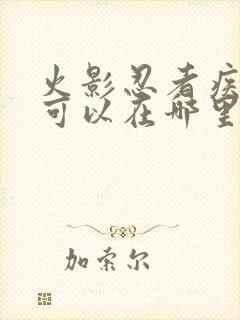 火影忍者疾
可以在哪里
加索尔